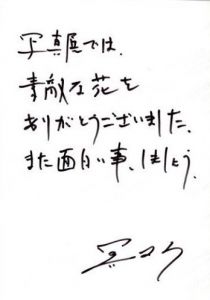 写真展では、
素敵な花を
ありがとうございました。
また面白い事、しましょう。